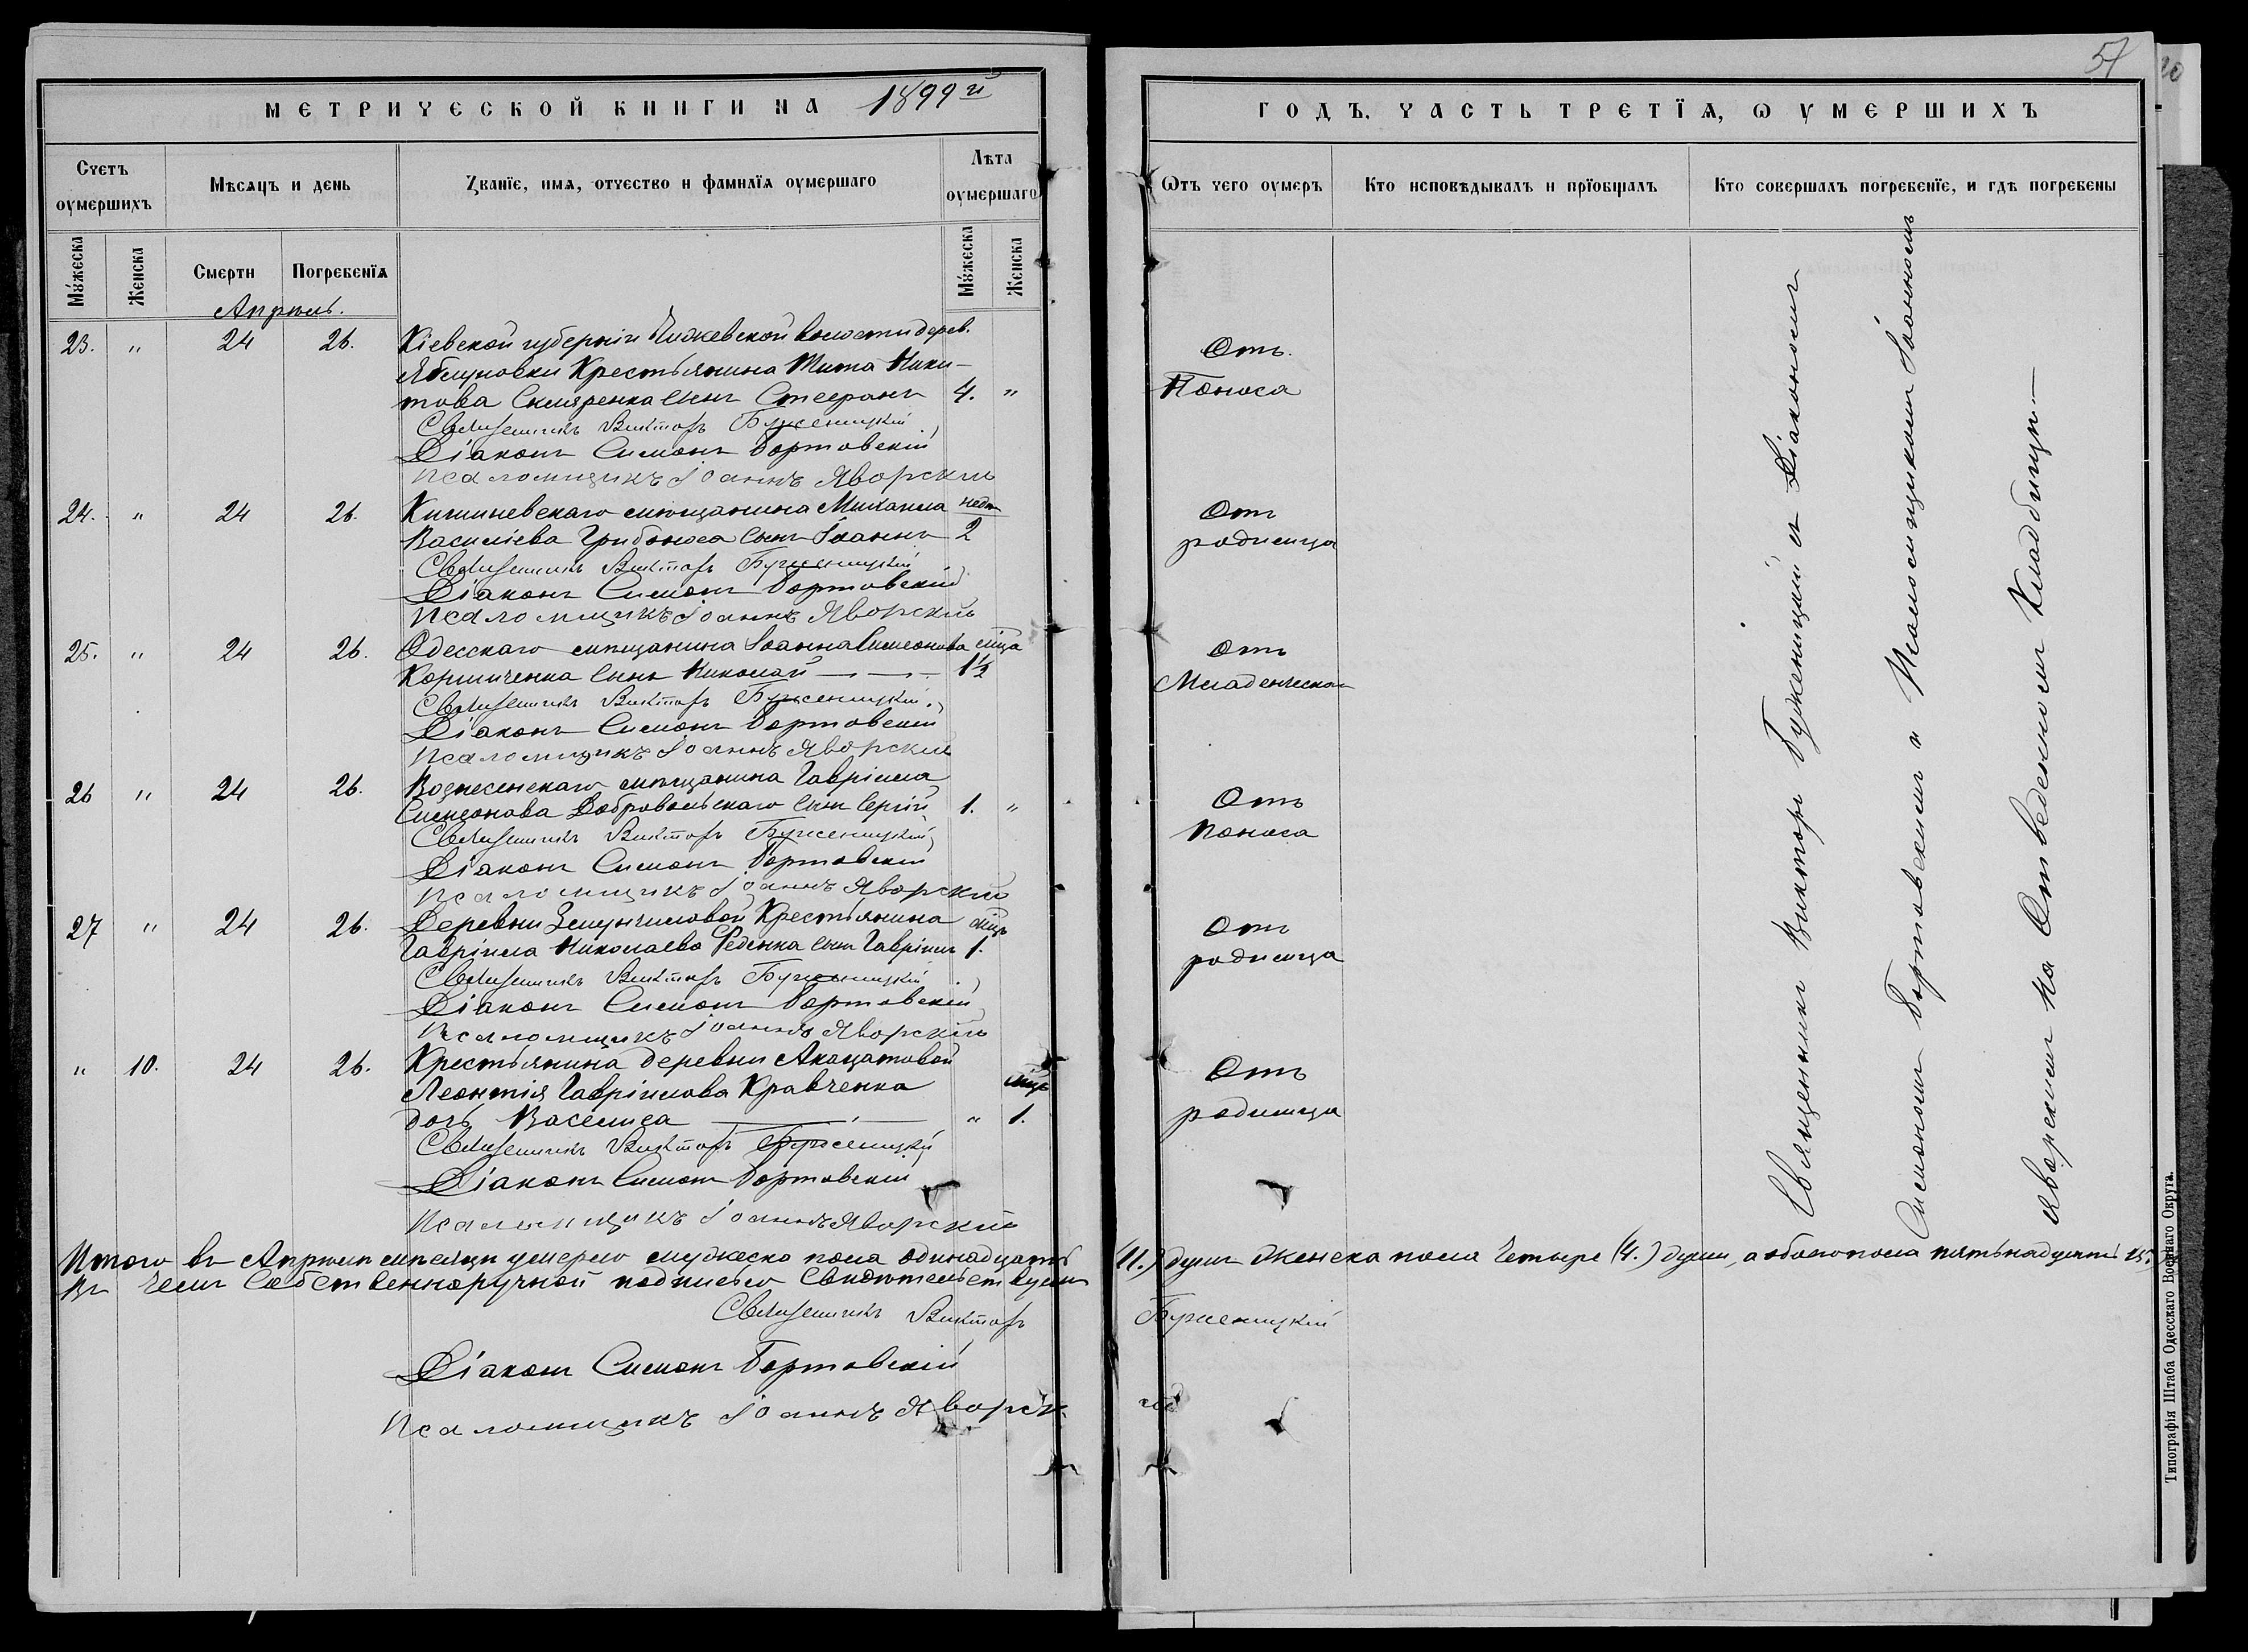 57
МЕТРИЧЕСКОЙ КНИГИ НА 1899й
ГОДЪ, ЧАСТЬ ТРЕТІѦ, Ѡ УМЕРШИХЪ
Счетъ оумершихъ
Мѣсѧцъ и день
Званїе, имѧ, отчество и фамилїѧ оумершаго
Лѣта оумершаго
Ѿтъ чего оумеръ
Кто исповѣдывалъ и прїобщалъ
Кто совершалъ погребенїе, и гдѣ погребены
Мꙋжеска
Женска
Смерти
Погребенїѧ
Мꙋжеска
Женска
Апрѣль.
23. " 24 26. Кіевской губерніи волости дерев.
Яблуновки Крестьянина Тита Ники-
това Скляренка сынъ Стефанъ 4. "
Отъ
Поноса
Священникъ Викторъ Буженицкій
Діаконъ Симонъ Бортовскій
Псаломщикъ Іоаннъ Яворскій
24. " 24 26. Кишиневскаго мѣщанина Михаила недѣ
Василіева Грибоноса сынъ Іоаннъ 2
Отъ
родимца
Священникъ Викторъ Буженицкій
Діаконъ Симонъ Бортовскій
Псаломщикъ Іоаннъ Яворскій
25. " 24 26. Одесскаго мѣщанина Іоанна Симеонова мѣца
сынъ Николай 1½
Отъ
Младенческой
Священникъ Викторъ Буженицкій
Діаконъ Симонъ Бортовскій
Псаломщикъ Іоаннъ Яворскій
26 " 24 26. Вознесенскаго мѣщанина Гавріила
Симеонова Добровольскаго сынъ Сергій 1. "
Отъ
Поноса
Священникъ Викторъ Буженицкій
Діаконъ Симонъ Бортовскій
Псаломщикъ Іоаннъ Яворскій
27 " 24 26. Деревни Крестьянина мѣцъ
Гавріила Николаева Феденка сынъ Гавріилъ 1.
Отъ
родимца
Священникъ Викторъ Буженицкій
Діаконъ Симонъ Бортовскій
Псаломщикъ Іоаннъ Яворскій
" 10. 24 26. Крестьянина деревни Акацатовой
Леонтія Гавріилова Кравченка мѣцъ
дочь Василиса " 1.
Отъ
родимца
Священникъ Викторъ Буженицкій
Діаконъ Симонъ Бортовскій
Псаломщикъ Іоаннъ Яворскій
Священникъ Викторъ Буженицкій съ Діакономъ
Симономъ Бортовскимъ и Псаломщикомъ Іоанномъ
Яворскимъ на Отведенномъ Кладбищѣ
Итого въ Апрѣлѣ мѣсяцѣ умерло мужеска пола одинадцать (11.) душъ женска пола четыре (4.) души, а обоего пола пятьнадцать 15.
Въ чемъ Собственноручной подписью Свидѣтельствуемъ
Священникъ Викторъ Буженицкій
Діаконъ Симонъ Бортовскій
Псаломщикъ Іоаннъ Яворскій
Типографія Штаба Одесскаго Военнаго Округа.